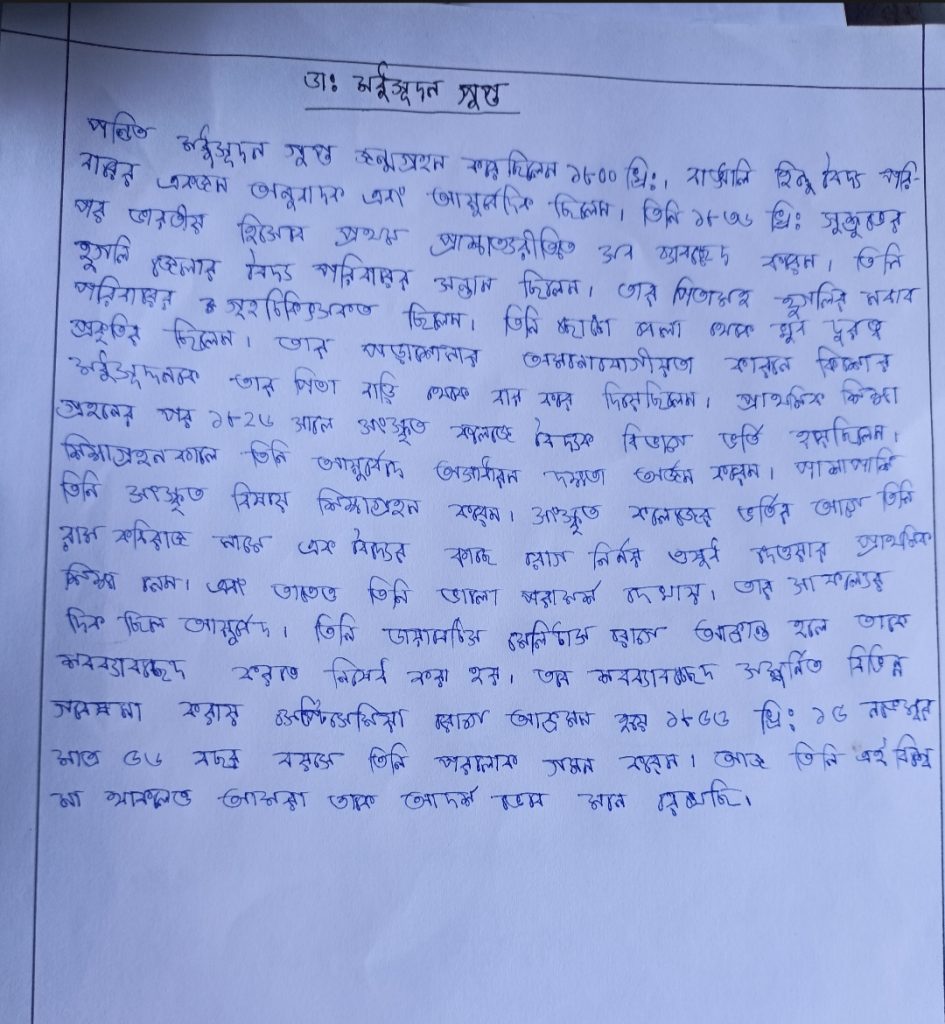 ডাঃ মধুসূদন গুপ্ত
পন্ডিত মধুসূদন গুপ্ত জন্মগ্রহন করেছিলেন ১৮০০ খ্রিঃ, বাঙালি হিন্দু বৈদ্য পরি-
বারের একজন অনুবাদক এবং আয়ুর্বেদিক ছিলেন। তিনি ১৮৩৬ খ্রিঃ সুশ্রুতের
পর ভারতীয় হিসেবে প্রথম পাশ্চাত্যরীতিতে শব ব্যবচ্ছেদ করেন। তিনি
হুগলি জেলার বৈদ্য পরিবারের সন্তান ছিলেন। তার পিতামহ হুগলির নবাব
পরিবারের গৃহচিকিৎসক ছিলেন। তিনি ছোটো বেলা থেকে খুব দুরন্ত
প্রকৃতির ছিলেন। তার পড়াশোনার অমনোযোগীয়তা কারনে কিশোর
মধুসূদনকে তার পিতা বাড়ি থেকে বার করে দিয়েছিলেন। প্রাথমিক শিক্ষা
গ্রহনের পর ১৮২৬ সালে সংস্কৃত কলেজে বৈদ্যক বিভাগে ভর্তি হয়েছিলেন।
শিক্ষাগ্রহন কালে তিনি আয়ুর্বেদে অসাধারন দক্ষতা অর্জন করেন। পাশাপাশি
তিনি সংস্কৃত বিষয়ে শিক্ষাগ্রহন করেন। সংস্কৃত কলেজের ভর্তির আগে তিনি
রাম কবিরাজ নামে এক বৈদ্যের কাছে রোগ নির্নয় ওষুধ দেওয়ার প্রাথমিক
শিক্ষা নেন। এবং তাতেও তিনি ভালো পরামর্শ দেখায়। তার সাফল্যের
দিক ছিল আয়ুর্বেদ। তিনি ডায়াবেটিস রোগে আক্রান্ত হলে তাকে
শবব্যবচ্ছেদ করতে নিষেধ করা হয়। তবে শবব্যবচ্ছেদ সম্পর্কিত বিভিন্ন
গবেষনা করায় সেপ্টিসেমিয়া রোগে আক্রমন হয়ে ১৮৫৬ খ্রিঃ ১৫ নভেম্বর
মাত্র ৫৬ বছর বয়সে তিনি পরলোক গমন করেন। আজ তিনি এই বিশ্বে
না থাকলেও আমরা তাকে আদর্শ ভেবে মনে রেখেছি।